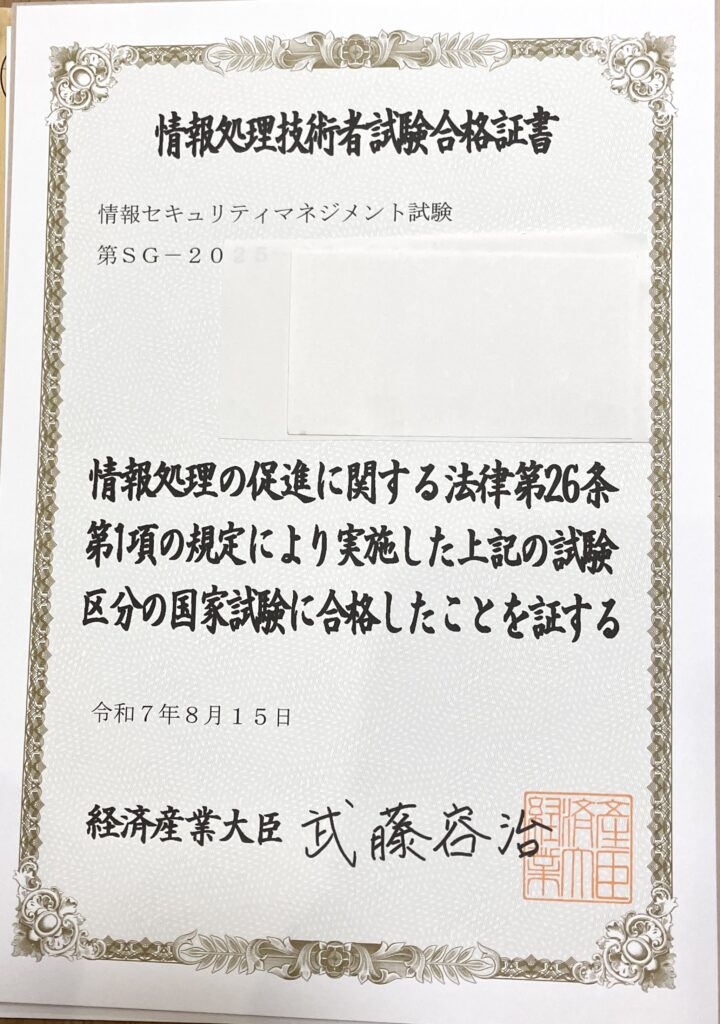 情報処理技術者試験合格証書
情報セキュリティマネジメント試験
第SG－2025
情報処理の促進に関する法律第26条
第1項の規定により実施した上記の試験
区分の国家試験に合格したことを証する
令和7年8月15日
経済産業大臣 武藤容治
経済産業大臣